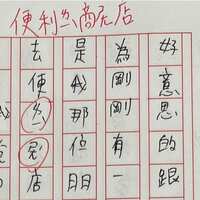 便利商店
好意思的跟
為剛剛有一
是我那位朋
去便店